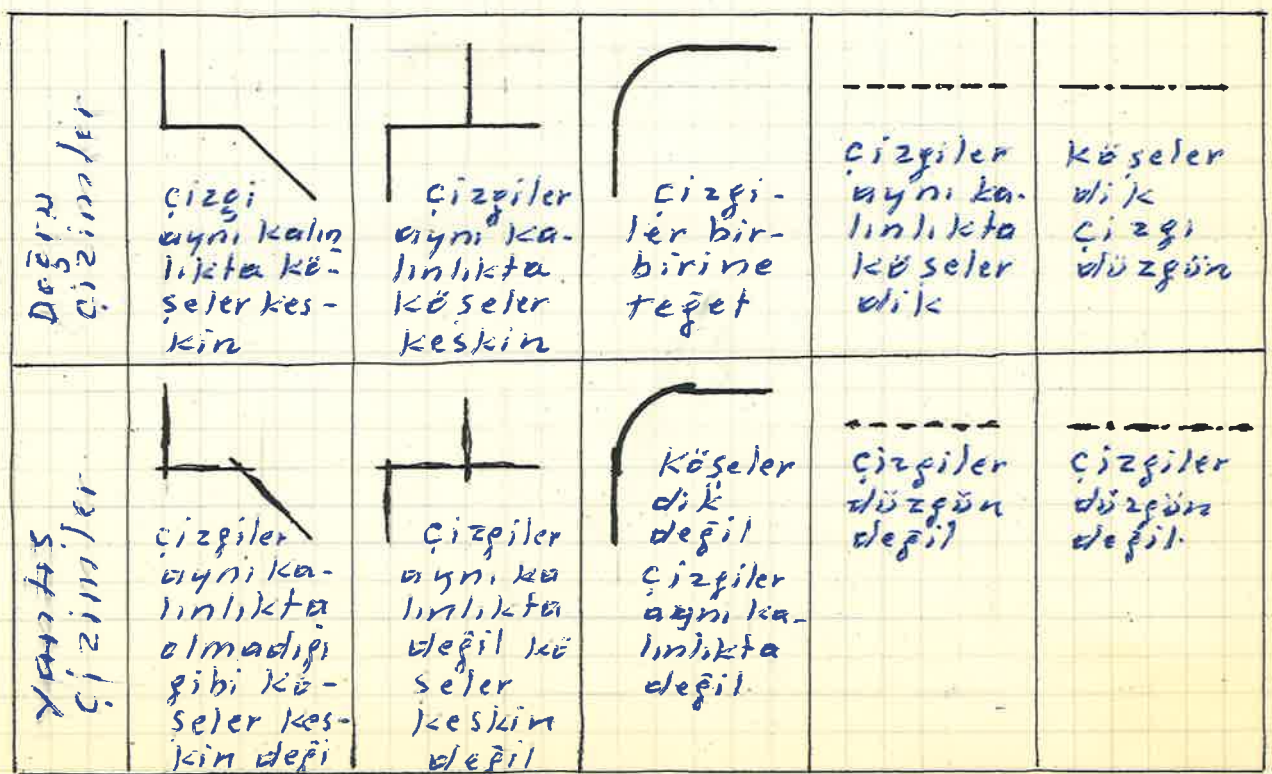 Doğru
çizimler
çizgi
aynı kalın
lıkta kö-
şeler kes-
kin
çizgiler
aynı ka-
lınlıkta
köşeler
keskin
çizgi-
ler bir-
birine
teğet
çizgiler
aynı ka-
lınlıkta
köşeler
dik
köşeler
dik
çizgi
düzgün
Yanlış
çizimler
çizgiler
aynı ka-
lınlıkta
olmadığı
gibi kö-
şeler kes-
kin deği
çizgiler
aynı ka
lınlıkta
değil kö
şeler
keskin
değil
Köşeler
dik
değil
çizgiler
aynı ka-
lınlıkta
değil
çizgiler
düzgün
değil
çizgiler
düzgün
değil.